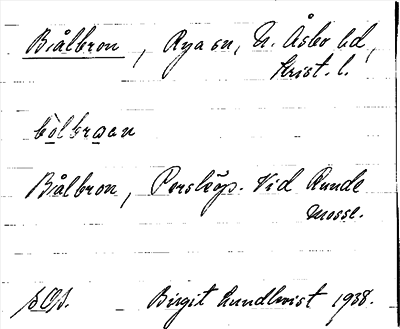 Bålbron, Rya sn, N. Åsbo hd,
Krist. l.
bòlbroan
Bålbron, Perslöps. Vid Runde
mosse.
Birgit Lundkvist 1938.